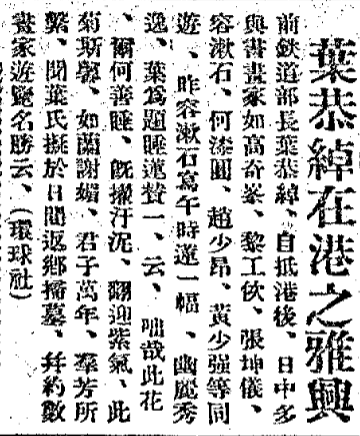 葉恭綽在港之雅興
前鉄道部長葉恭綽、自抵港後、日中多
與書畫家如高奇峯、黎工佽、張坤儀、
容漱石、何漆圃、趙少昂、黃少强等同
遊、昨容漱石寫午時蓮一幅、幽麗秀
逸、葉爲題睡蓮贊一、云、咄哉此花
、爾何善睡、旣擢汙泥、翻迎紫氣、此
菊斯馨、如蘭謝媚、君子萬年、羣芳所
繫、聞葉氏擬於日間返鄉掃墓、幷約數
畫家遊覽名勝云、（環球社）